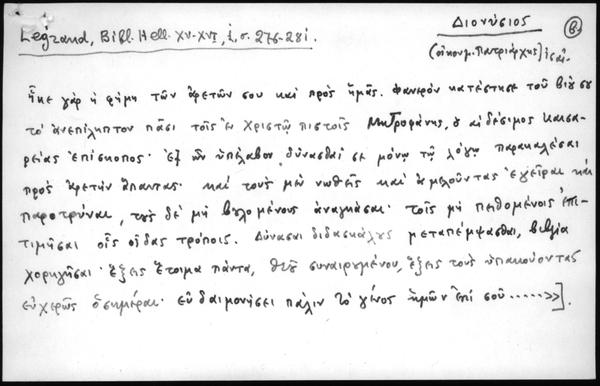 Legrand, Bibl. Hell. XV-XVI, i, σ. 276-281.
Διονύσιος
Β.
(οἰκουμ. Πατριάρχης)
ἧκε γὰρ ἡ φήμη τῶν ἀρετῶν σου καὶ πρὸς ἡμᾶς. Φανερὸν κατέστησε τοῦ βίου σου
τὸ ἀνεπίληπτον πᾶσι τοῖς ἐν Χριστῷ πιστοῖς Μητροφάνης, ὁ αἰδέσιμος Καισα-
ρείας ἐπίσκοπος. ἐξ ὧν ὑπέλαβον δύνασθαί σε μόνῳ τῷ λόγῳ παρακαλέσαι
πρὸς ἀρετὴν ἅπαντας. καὶ τοὺς μὲν νωθεῖς καὶ ἀμελοῦντας ἐγεῖραι καὶ
παροτρῦναι, τοὺς δὲ μὴ βουλομένους ἀναγκάσαι. τοῖς μὴ πειθομένοις ἐπι-
τιμῆσαι οἷς οἶδας τρόποις. Δύνασαι διδασκάλους μεταπέμψασθαι, βιβλία
χορηγῆσαι. ἕξεις ἕτοιμα πάντα, θεοῦ συναιρομένου, ἕξεις τοὺς ὑπακούοντας
εὐχερῶς ὁσημέραι. εὐδαιμονήσει πάλιν τὸ γένος ἡμῶν ἐπὶ σοῦ ......>>].